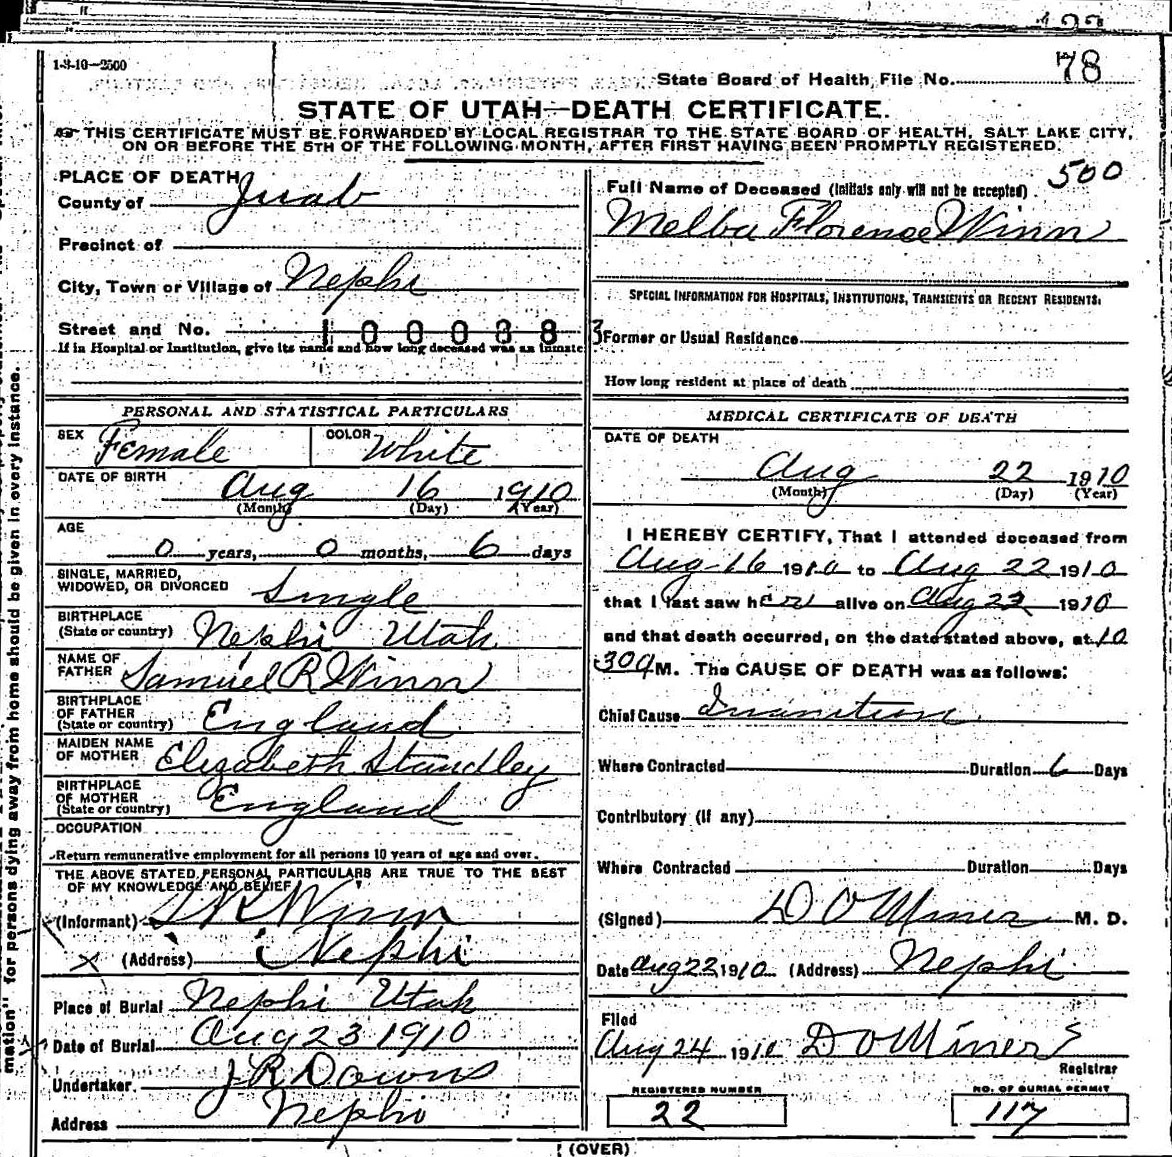 1-3-10—2500
State Board of Health File No. 78
STATE OF UTAH—DEATH CERTIFICATE.
THIS CERTIFICATE MUST BE FORWARDED BY LOCAL REGISTRAR TO THE STATE BOARD OF HEALTH, SALT LAKE CITY,
ON OR BEFORE THE 5TH OF THE FOLLOWING MONTH, AFTER FIRST HAVING BEEN PROMPTLY REGISTERED.
PLACE OF DEATH
County of Juab
Precinct of
City, Town or Village of Nephi
Street and No.
If in Hospital or Institution, give its name and how long deceased was an inmate
PERSONAL AND STATISTICAL PARTICULARS
SEX Female COLOR White
DATE OF BIRTH Aug 16 1910
(Month) (Day) (Year)
AGE
0 years, 0 months, 6 days
SINGLE, MARRIED,
WIDOWED, OR DIVORCED Single
BIRTHPLACE
(State or country) Nephi Utah
NAME OF
FATHER Samuel R Winn
BIRTHPLACE
OF FATHER
(State or country) England
MAIDEN NAME
OF MOTHER Elizabeth Standley
BIRTHPLACE
OF MOTHER
(State or country) England
OCCUPATION
Return remunerative employment for all persons 10 years of age and over.
THE ABOVE STATED PERSONAL PARTICULARS ARE TRUE TO THE BEST
OF MY KNOWLEDGE AND BELIEF
(Informant) S R Winn
(Address) Nephi
Place of Burial Nephi Utah
Date of Burial Aug 23 1910
Undertaker. J R Downs
Address Nephi
500
Full Name of Deceased (Initials only will not be accepted)
Melba Florence Winn
SPECIAL INFORMATION FOR HOSPITALS, INSTITUTIONS, TRANSIENTS OR RECENT RESIDENTS:
Former or Usual Residence
How long resident at place of death
MEDICAL CERTIFICATE OF DEATH
DATE OF DEATH
Aug 22 1910
(Month) (Day) (Year)
I HEREBY CERTIFY, That I attended deceased from
Aug 16 1910 to Aug 22 1910
that I last saw her alive on Aug 22 1910
and that death occurred, on the date stated above, at 10
30 a M. The CAUSE OF DEATH was as follows:
Chief Cause Inanition
Where Contracted Duration 6 Days
Contributory (if any)
Where Contracted Duration Days
(Signed) D O Miner M. D.
Date Aug 22 1910 (Address) Nephi
Filed
Aug 24 1910 D O Miner
Registrar
REGISTERED NUMBER
22
NO. OF BURIAL PERMIT
117
(OVER)
mation" for persons dying away from home should be given in every instance.